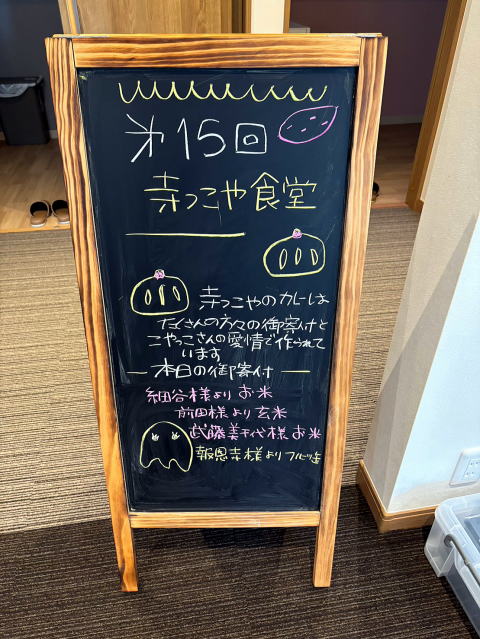 㐧15回
寺っこや食堂
寺っこやのカレーは
たくさんの方々の御寄付と
こやっこさんの愛情で作られて
います
本日の御寄付
細谷様よりお米
前田様より玄米
武藤美千代様お米
報恩寺様よりフルーツ缶